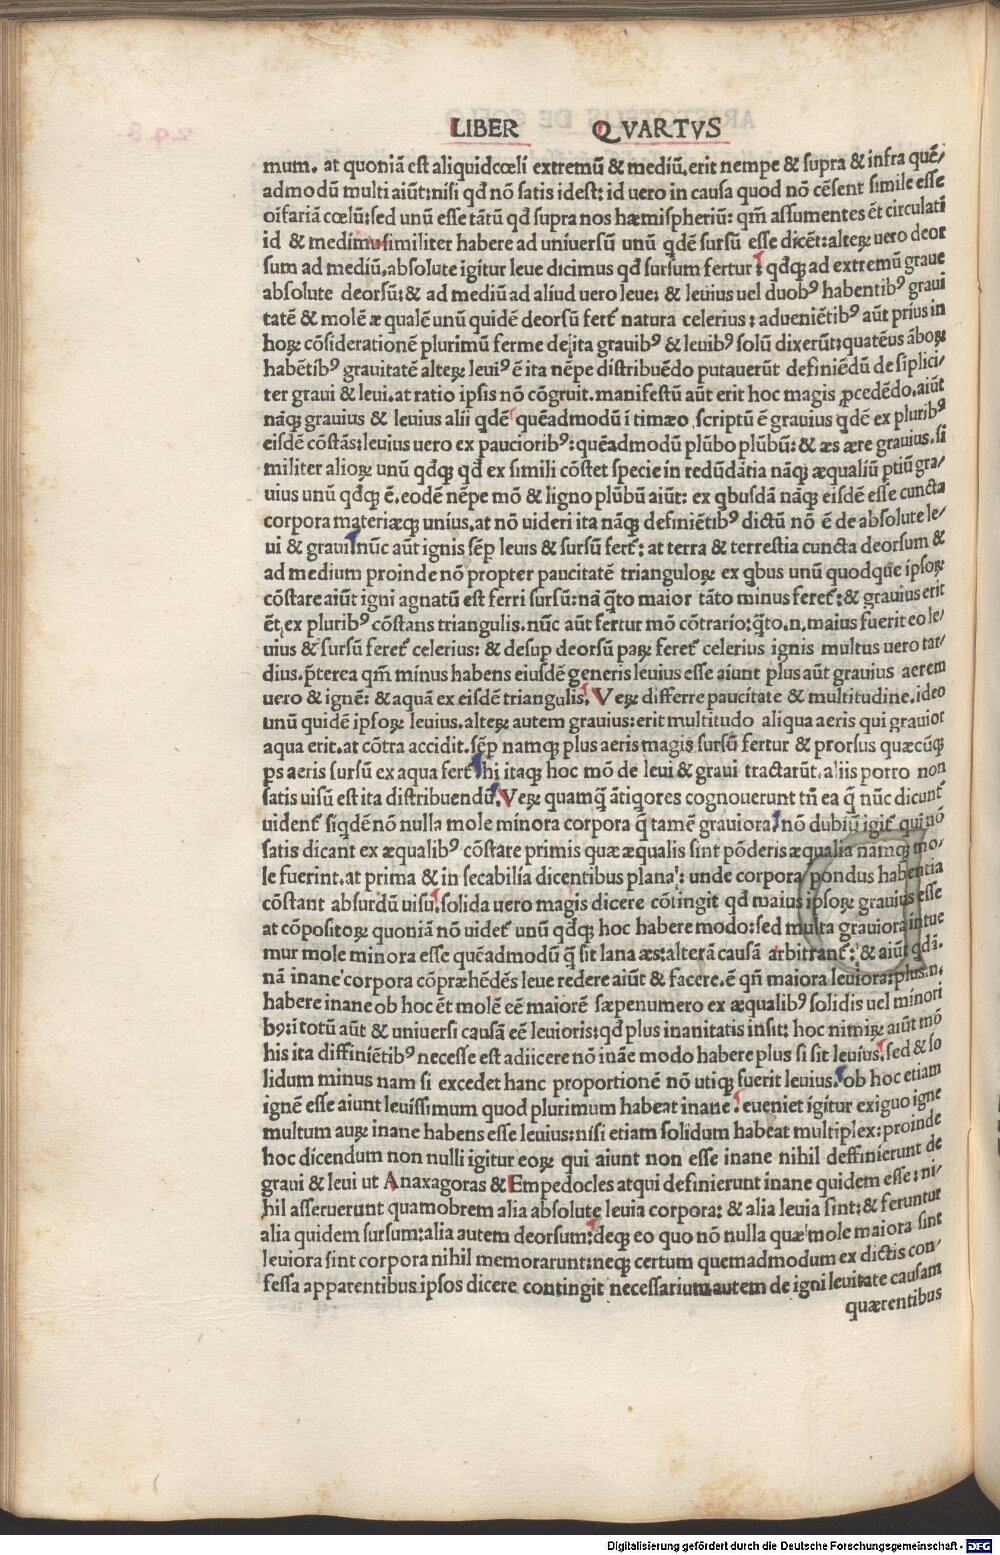 LIBER QVARTVS
mum. at quoniã est aliquid cœli extremũ & mediũ. erit nempe & supra & infra quẽ/
admodũ multi aiũt: nisi qđ nõ satis idest: id uero in causa quod nõ cẽsent simile esse
oĩfariã cœlũ: sed unũ esse tãtũ qđ supra nos hæmispheriũ: qm̃ assumentes ẽt circulati
id & medium similiter habere ad uniuersũ unũ qdẽ sursũ esse dicẽt: alteꝝ uero deor
sum ad mediũ. absolute igitur leue dicimus qđ sursum fertur: qđꝗ ad extremũ graue
absolute deorsũ: & ad mediũ ad aliud uero leue: & leuius uel duobꝰ habentibꝰ graui
tatẽ & molẽ æqualẽ unũ quidẽ deorsũ fert̃ natura celerius: adueniẽtibꝰ aũt prius in
hoꝝ cõsiderationẽ plurimũ ferme de ita grauibꝰ & leuibꝰ solũ dixerũt: quatẽus ãboꝝ
habẽtibꝰ grauitatẽ alteꝝ leuiꝰ ẽ ita nẽpe distribuẽdo putauerũt definiẽdũ de siplici/
ter graui & leui. at ratio ipsis nõ cõgruit. manifestũ aũt erit hoc magis ꝓcedẽdo. aiũt
nãꝗ grauius & leuius alii qdẽ quẽadmodũ ĩ timæo scriptũ ẽ grauius qdẽ ex pluribꝰ
eisdẽ cõstãs: leuius uero ex pauciorib⁹: quẽadmodũ plũbo plũbũ: & æs ære grauius. si
militer alioꝝ unũ qđꝗ qđ ex simili cõstet specie in redũdãtia nãꝗ æqualiũ ptiũ gra/
uius unũ qđꝗ ẽ. eodẽ nẽpe mõ & ligno plũbũ aiũt: ex qbusdã nãꝗ eisdẽ esse cuncta
corpora materiæꝗ unius. at nõ uideri ita nãꝗ definiẽtibꝰ dictũ nõ ẽ de absolute le/
ui & graui nũc aũt ignis sẽp leuis & sursũ fert̃: at terra & terrestia cuncta deorsum &
ad medium proinde nõ propter paucitatẽ trianguloꝝ ex qbus unũ quodque ipsoꝝ
cõstare aiũt igni agnatũ est ferri sursũ: nã q̃to maior tãto minus feret̃: & grauius erit
ẽt ex pluribꝰ cõstans triangulis. nũc aũt fertur mõ cõtrario: q̃to.n. maius fuerit eo le/
uius & sursũ feret̃ celerius: & desup deorsũ paꝝ feret̃ celerius ignis multus uero tar/
dius. p̃terea qm̃ minus habens eiusdẽ generis leuius esse aiunt plus aũt grauius aerem
uero & ignẽ: & aquã ex eisdẽ triangulis. Veꝝ differre paucitate & multitudine. ideo
unũ quidẽ ipsoꝝ leuius. alteꝝ autem grauius: erit multitudo aliqua aeris qui grauior
aqua erit. at cõtra accidit. sẽp namꝗ plus aeris magis sursũ fertur & prorsus quæcũꝗ
ps aeris sursũ ex aqua fert̃ hi itaꝗ hoc mõ de leui & graui tractarũt. aliis porro non
satis uisũ est ita distribuendũ. Veꝝ quamq̃ ãtiqores cognouerunt tñ ea q̃ nũc dicunt̃
uident̃ siqdẽ nõ nulla mole minora corpora q̃ tamẽ grauiora. nõ dubiũ igit̃ qui nõ
satis dicant ex æqualibꝰ cõstare primis quæ æqualis sint põderis æqualia namꝗ mo/
le fuerint. at prima & in secabilia dicentibus plana: unde corpora pondus habentia
cõstant absurdũ uisu. solida uero magis dicere cõtingit qđ maius ipsoꝝ grauius esse
at cõpositoꝝ quoniã nõ uidet̃ unũ qđꝗ hoc habere modo: sed multa grauiora intue
mur mole minora esse quẽadmodũ q̃ sit lana æs: alterã causã arbitrant̃: & aiũt qdã.
nã inane corpora cõpræhẽdẽs leue redere aiũt & facere. ẽ qñ maiora leuiora: plus.n.
habere inane ob hoc ẽt molẽ eẽ maiorẽ sæpenumero ex æqualibꝰ solidis uel minori
bꝰ: ĩ totũ aũt & uniuersi causã eẽ leuioris: qđ plus inanitatis insit: hoc nimiꝝ aiũt mõ
his ita diffiniẽtibꝰ necesse est adiicere nõ inãe modo habere plus si sit leuius. sed & so
lidum minus nam si excedet hanc proportionẽ nõ utiꝗ fuerit leuius. ob hoc etiam
ignẽ esse aiunt leuissimum quod plurimum habeat inane. eueniet igitur exiguo igne
multum auꝝ inane habens esse leuius: nisi etiam solidum habeat multiplex: proinde
hoc dicendum non nulli igitur eoꝝ qui aiunt non esse inane nihil deffinierunt de
graui & leui ut Anaxagoras & Empedocles atqui definierunt inane quidem esse: ni/
hil asseruerunt quamobrem alia absolute leuia corpora: & alia leuia sint: & feruntur
alia quidem sursum: alia autem deorsum: deꝗ eo quo nõ nulla quæ mole maiora sint
leuiora sint corpora nihil memorarunt: neꝗ certum quemadmodum ex dictis con/
fessa apparentibus ipsos dicere contingit necessarium autem de igni leuitate causam
quærentibus
Digitalisierung gefördert durch die Deutsche Forschungsgemeinschaft - DFG